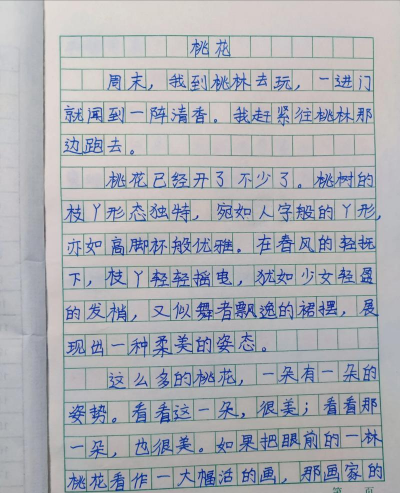 桃花
周末，我到桃林去玩，一进门
就闻到一阵清香。我赶紧往桃林那
边跑去。
桃花已经开了不少了。桃树的
枝丫形态独特，宛如人字般的丫形，
亦如高脚杯般优雅。在春风的轻抚
下，枝丫轻轻摇曳，犹如少女轻盈
的发梢，又似舞者飘逸的裙摆，展
现出一种柔美的姿态。
这么多的桃花，一朵有一朵的
姿势。看看这一朵，很美；看看那
一朵，也很美。如果把眼前的一林
桃花看作一大幅活的画，那画家的
第 页